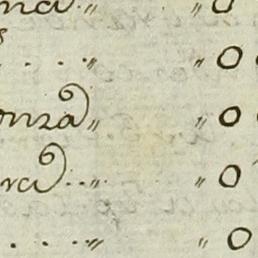 na „ „ 0
. . . . „ „ 0 0
onza „ „ 0
ra . . „ „ 0
. . . . „ „ 0